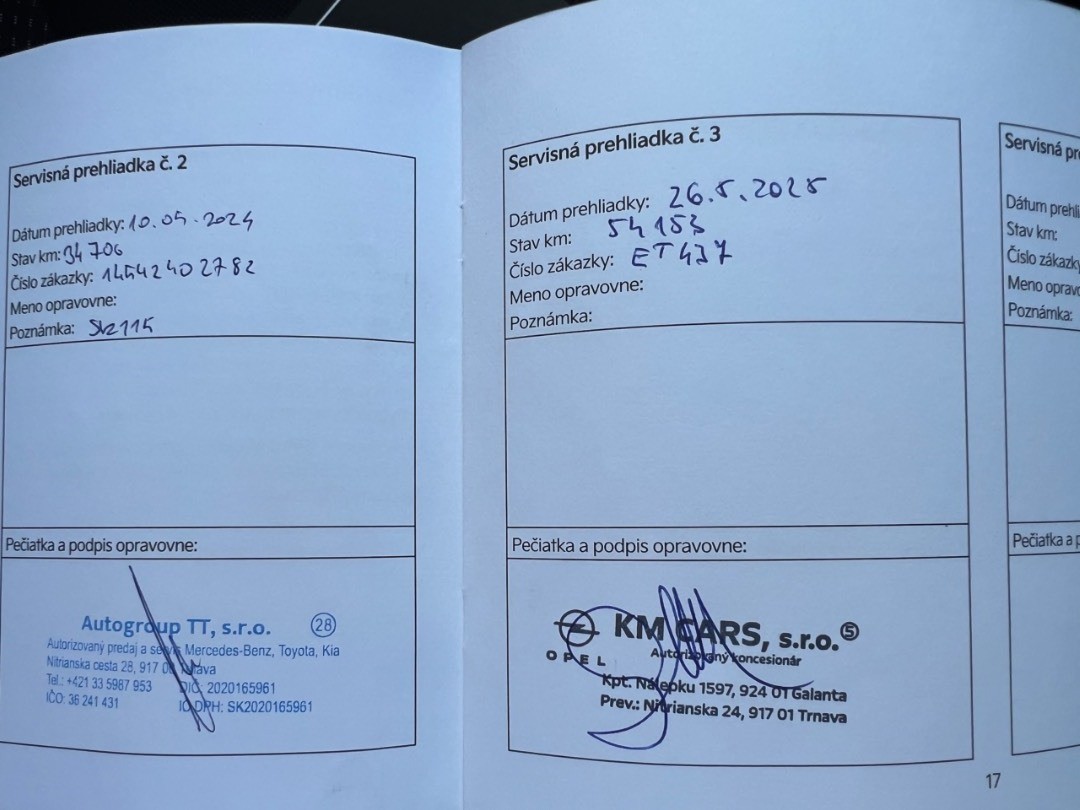 Servisná prehliadka č. 2
Dátum prehliadky: 10.05.2024
Stav km: 34 706
Číslo zákazky: 1454240 2782
Meno opravovne:
Poznámka:
Pečiatka a podpis opravovne:
Autogroup TT, s.r.o. 28
Autorizovaný predaj a servis Mercedes-Benz, Toyota, Kia
Nitrianska cesta 28, 917 Trnava
Tel.: +421 33 5987 953 DIČ: 2020165961
IČO: 36 241 431 IČ DPH: SK2020165961
Servisná prehliadka č. 3
Dátum prehliadky: 26.5.2025
Stav km: 54 153
Číslo zákazky: ET437
Meno opravovne:
Poznámka:
Pečiatka a podpis opravovne:
OPEL
KM CARS, s.r.o. 5
Autorizovaný koncesionár
Kpt. Nálepku 1597, 924 01 Galanta
Prev.: Nitrianska 24, 917 01 Trnava
17
Servisná pre
Dátum prehli
Stav km:
Číslo zákazky
Meno oprav
Poznámka:
Pečiatka a p